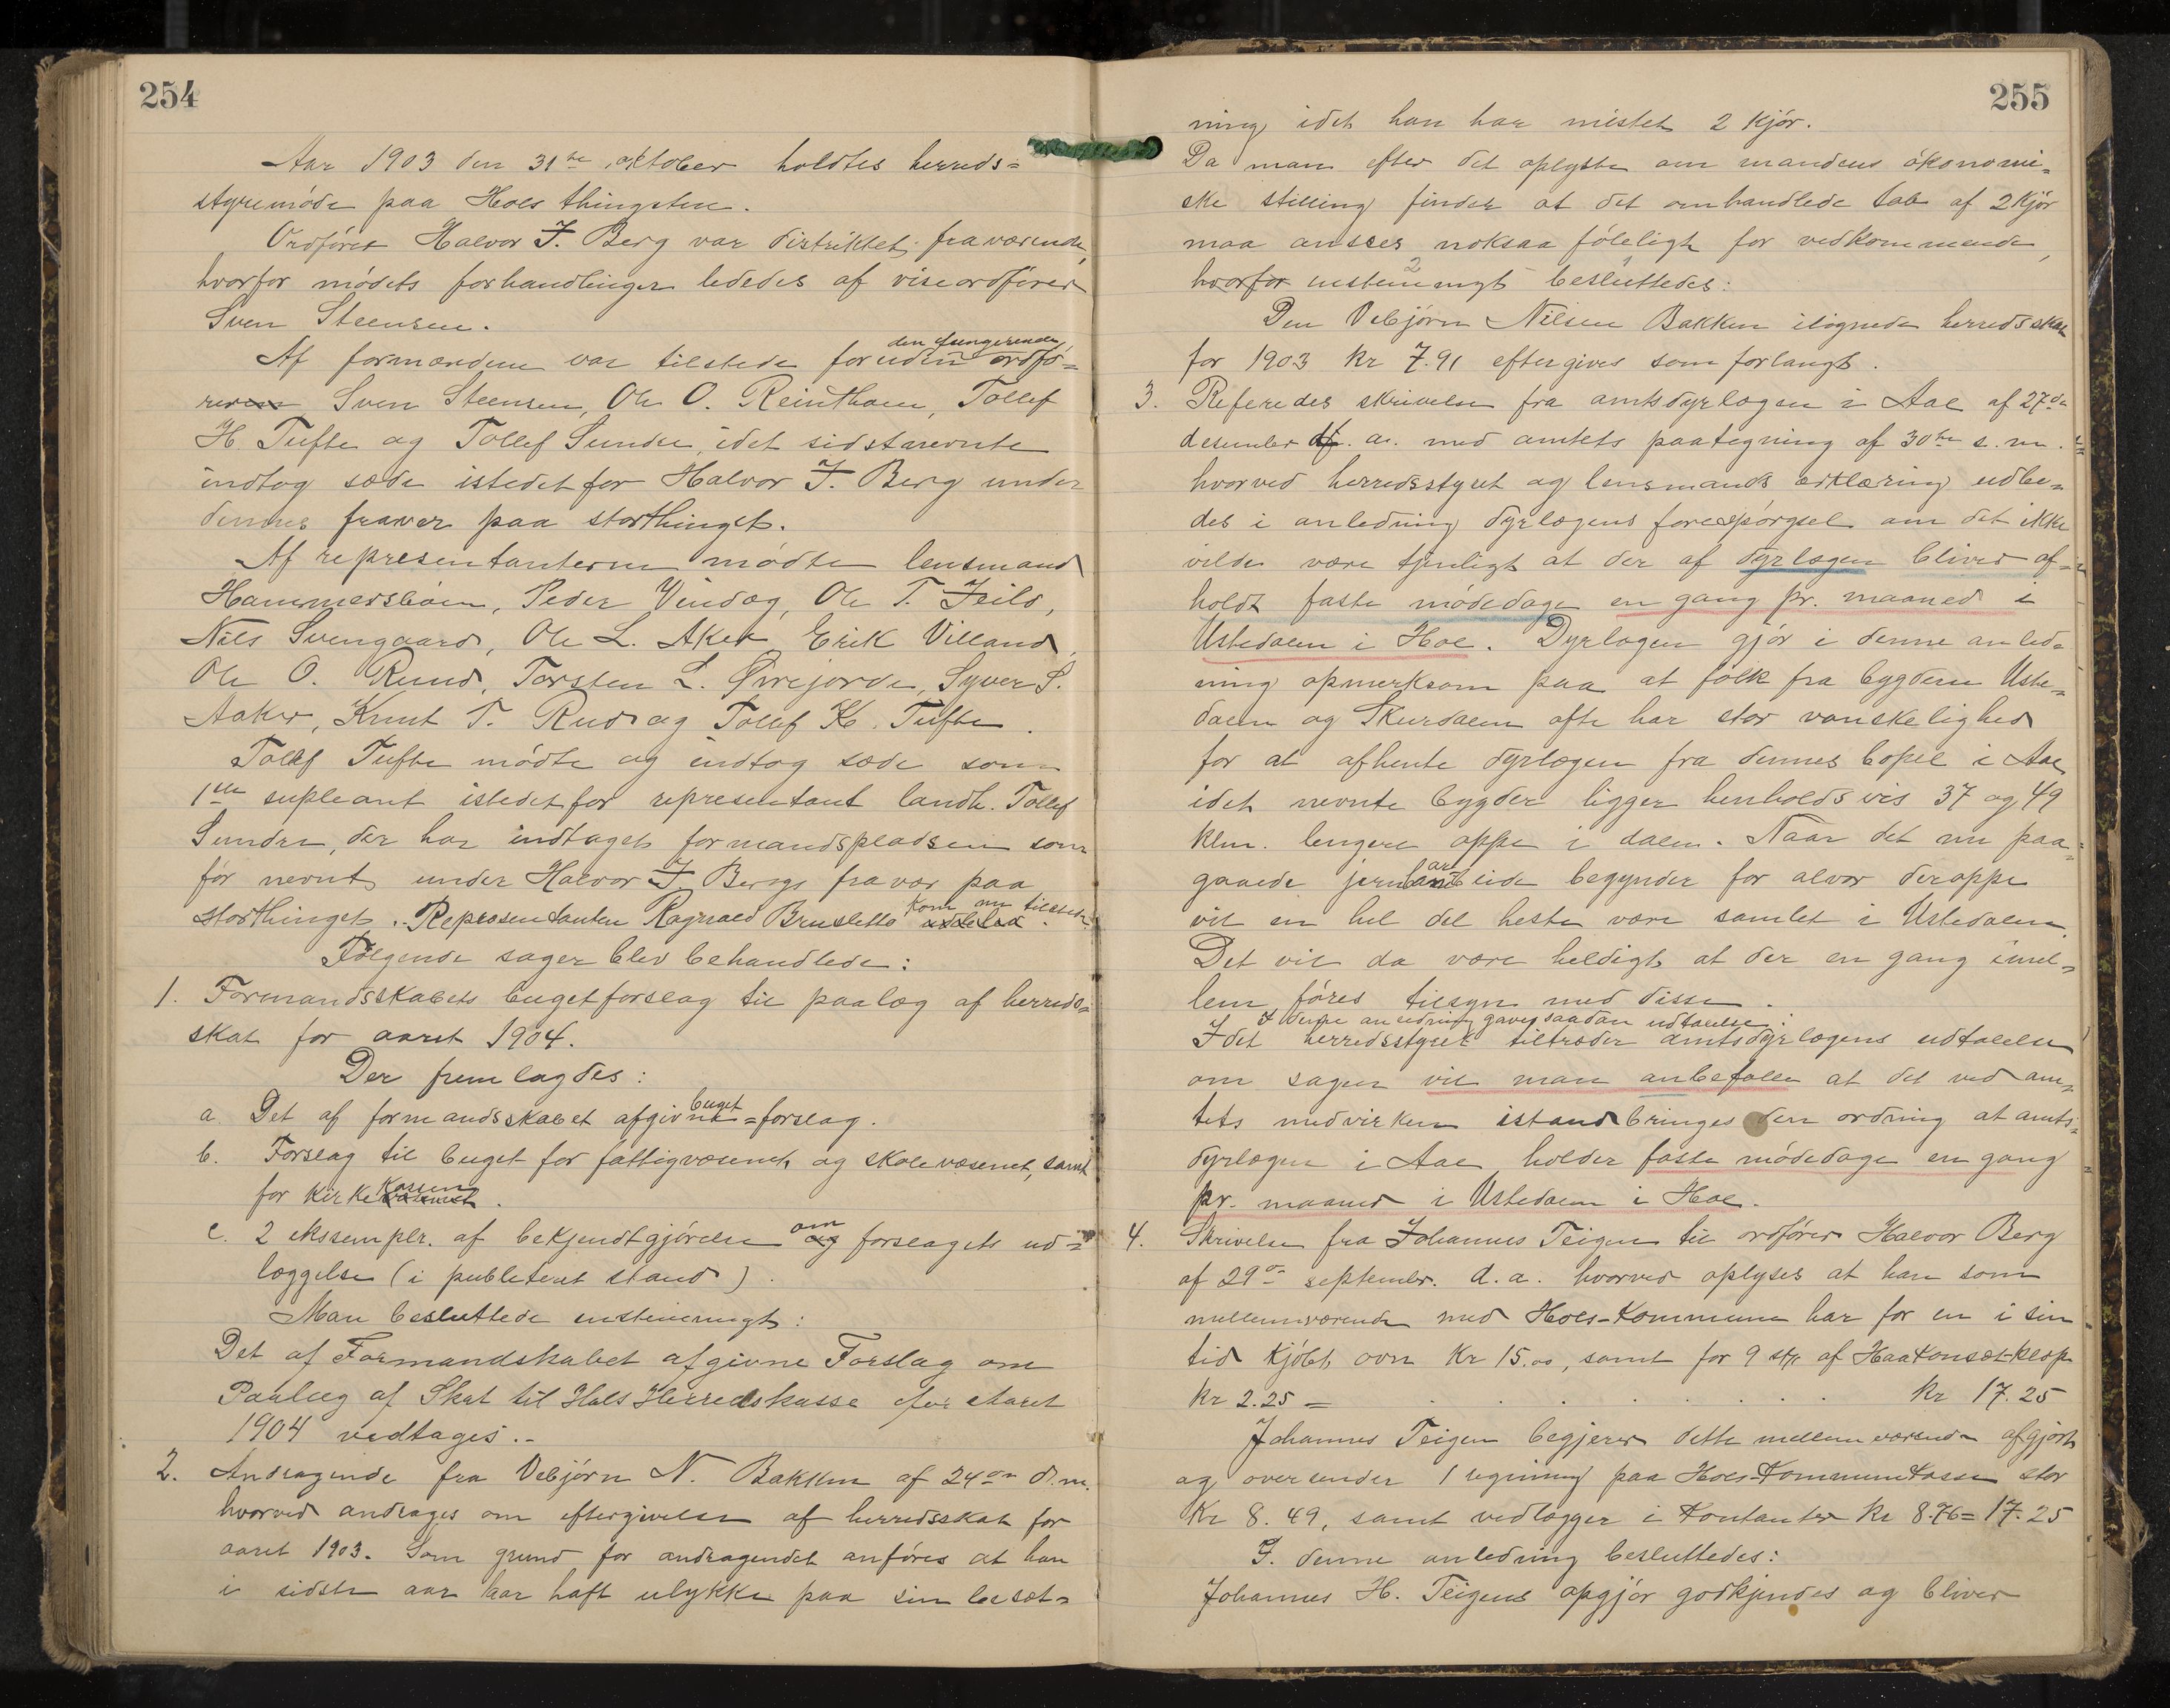 254
Aar 1903 den 31te oktober holdtes herreds=
styremøde paa Hols thingstue.
Ordfører Halvor T. Berg var distriktet fraværende,
hvorfor mødets forhandlinger lededes af viseordfører
Sven Steensen.
den fungerende
Af formændene var tilstede foruden ordfø=
reren Sven Steensen, Ole O. Reinthon, Tollef
H. Tufte og Tollef Sundre, idet sidstnevnte
indtog sæde istedetfor Halvor T. Berg under
dennes fravær paa storthinget.
Af representanterne mødte lensmand
Hammersbøen, Peder Vindeg, Ole T.
Nils Svengaard, Ole L. Aker, Erik Villand,
Ole O. Rund, Torsten L. Øvrejorde, Syver S.
Aaker, Knut T. Rud og Tollef K. Tufte.
Tollef Tufte mødte og indtog sæde som
1ste supleant istedetfor representant landh. Tollef
Sundre, der har indtaget formandspladsen som
før nevnt under Halvor T Bergs fravær paa
kom nu tilstede
storthinget. Representanten Ragnvald Brusletto udeblev.
Følgende sager blev behandlede:
1. Formandsskabets bugetforslag til paalæg af herreds=
skat for aaret 1904.
Der fremlagdes:
buget
a. Det af formandsskabet afgivne=forslag.
b. Forslag til buget for fattigvæsenet og skolevæsenet, samt
kassen
for kirkevæsenet.
om
c. 2 eksemplr. af bekjendtgjørelse og forslagets ud=
læggelse (i publiceret stand).
Man besluttede enstemmigt:
Det af Formandskabet afgivne Forslag om
Paalæg af Skat til Hols Herredskasse for Aaret
1904 vedtages.-
2. Andragende fra Vebjørn N. Bakken af 24de d.m.
hvorved andrages om eftergivelse af herredsskat for
aaret 1903. Som grund for andragendet anføres at han
i sidste aar har haft ulykke paa sin besæt=
255
ning idet han har mistet 2 kjør.
Da man efter det oplyste om mandens økonomi=
ske stilling finder at det omhandlede tab af 2 kjør
maa ansees noksaa føleligt for vedkommende,
2 1
hvorfor enstemmigt besluttedes:
Den Vebjørn Nilsen Bakken ilignede herredsskat
for 1903 kr 7.91 eftergives som forlangt.
3. Referedes skrivelse fra amtsdyrlægen i Aal af 27de
desember f. a. med amtets paategning af 30te s. m.
hvorved herredsstyret og lensmands erklæring udbe=
des i anledning dyrlægens forespørgsel om det ikke
vilde være tjenligt at der af dyrlægen bliver af=
holdt faste mødedage en gang pr. maaned i
Ustedalen i Hol. Dyrlægen gjør i denne anled=
ning opmerksom paa at folk fra bygdene Uste=
dalen og Skurdalen ofte har stor vanskelighed
for at afhente dyrlægen fra dennes bopel i Aal,
idet nevnte bygder ligger henholdsvis 37 og 49
klm. lengere oppe i dalen. Naar det nu paa=
ar
gaaede jernbanebeide begynder for alvor deroppe
vil en hel del heste være samlet i Ustedalen.
Det vil da være heldigt at der en gang imel=
lem føres tilsyn med disse.
I denne anledning gaves saadan udtalelse:
Idet herredsstyret tiltræder amtsdyrlægens udtalelse
om sagen vil man anbefale at det ved am=
tets medvirken istandbringes den ordning at amts=
dyrlægen i Aal holder faste mødedage en gang
pr. maaned i Ustedalen i Hol.
4. Skrivelse fra Johannes Teigen til ordfører Halvor Berg
af 29de septembr. d.a. hvorved oplyses at han som
mellemværende med Hols-kommune har for en i sin
tid kjøbt ovn kr 15.00, samt for 9 stk. af Haakonsæt-klop
kr 2.25 = . . . . . . . kr 17.25
Johannes Teigen begjerer dette mellemværende afgjort
og oversender 1 regning paa Hols-kommunekasse stor
kr 8.49, samt vedlægger i kontanter kr 8.76=17.25
I denne anledning besluttedes:
Johannes H. Teigens opgjør godkjendes og bliver